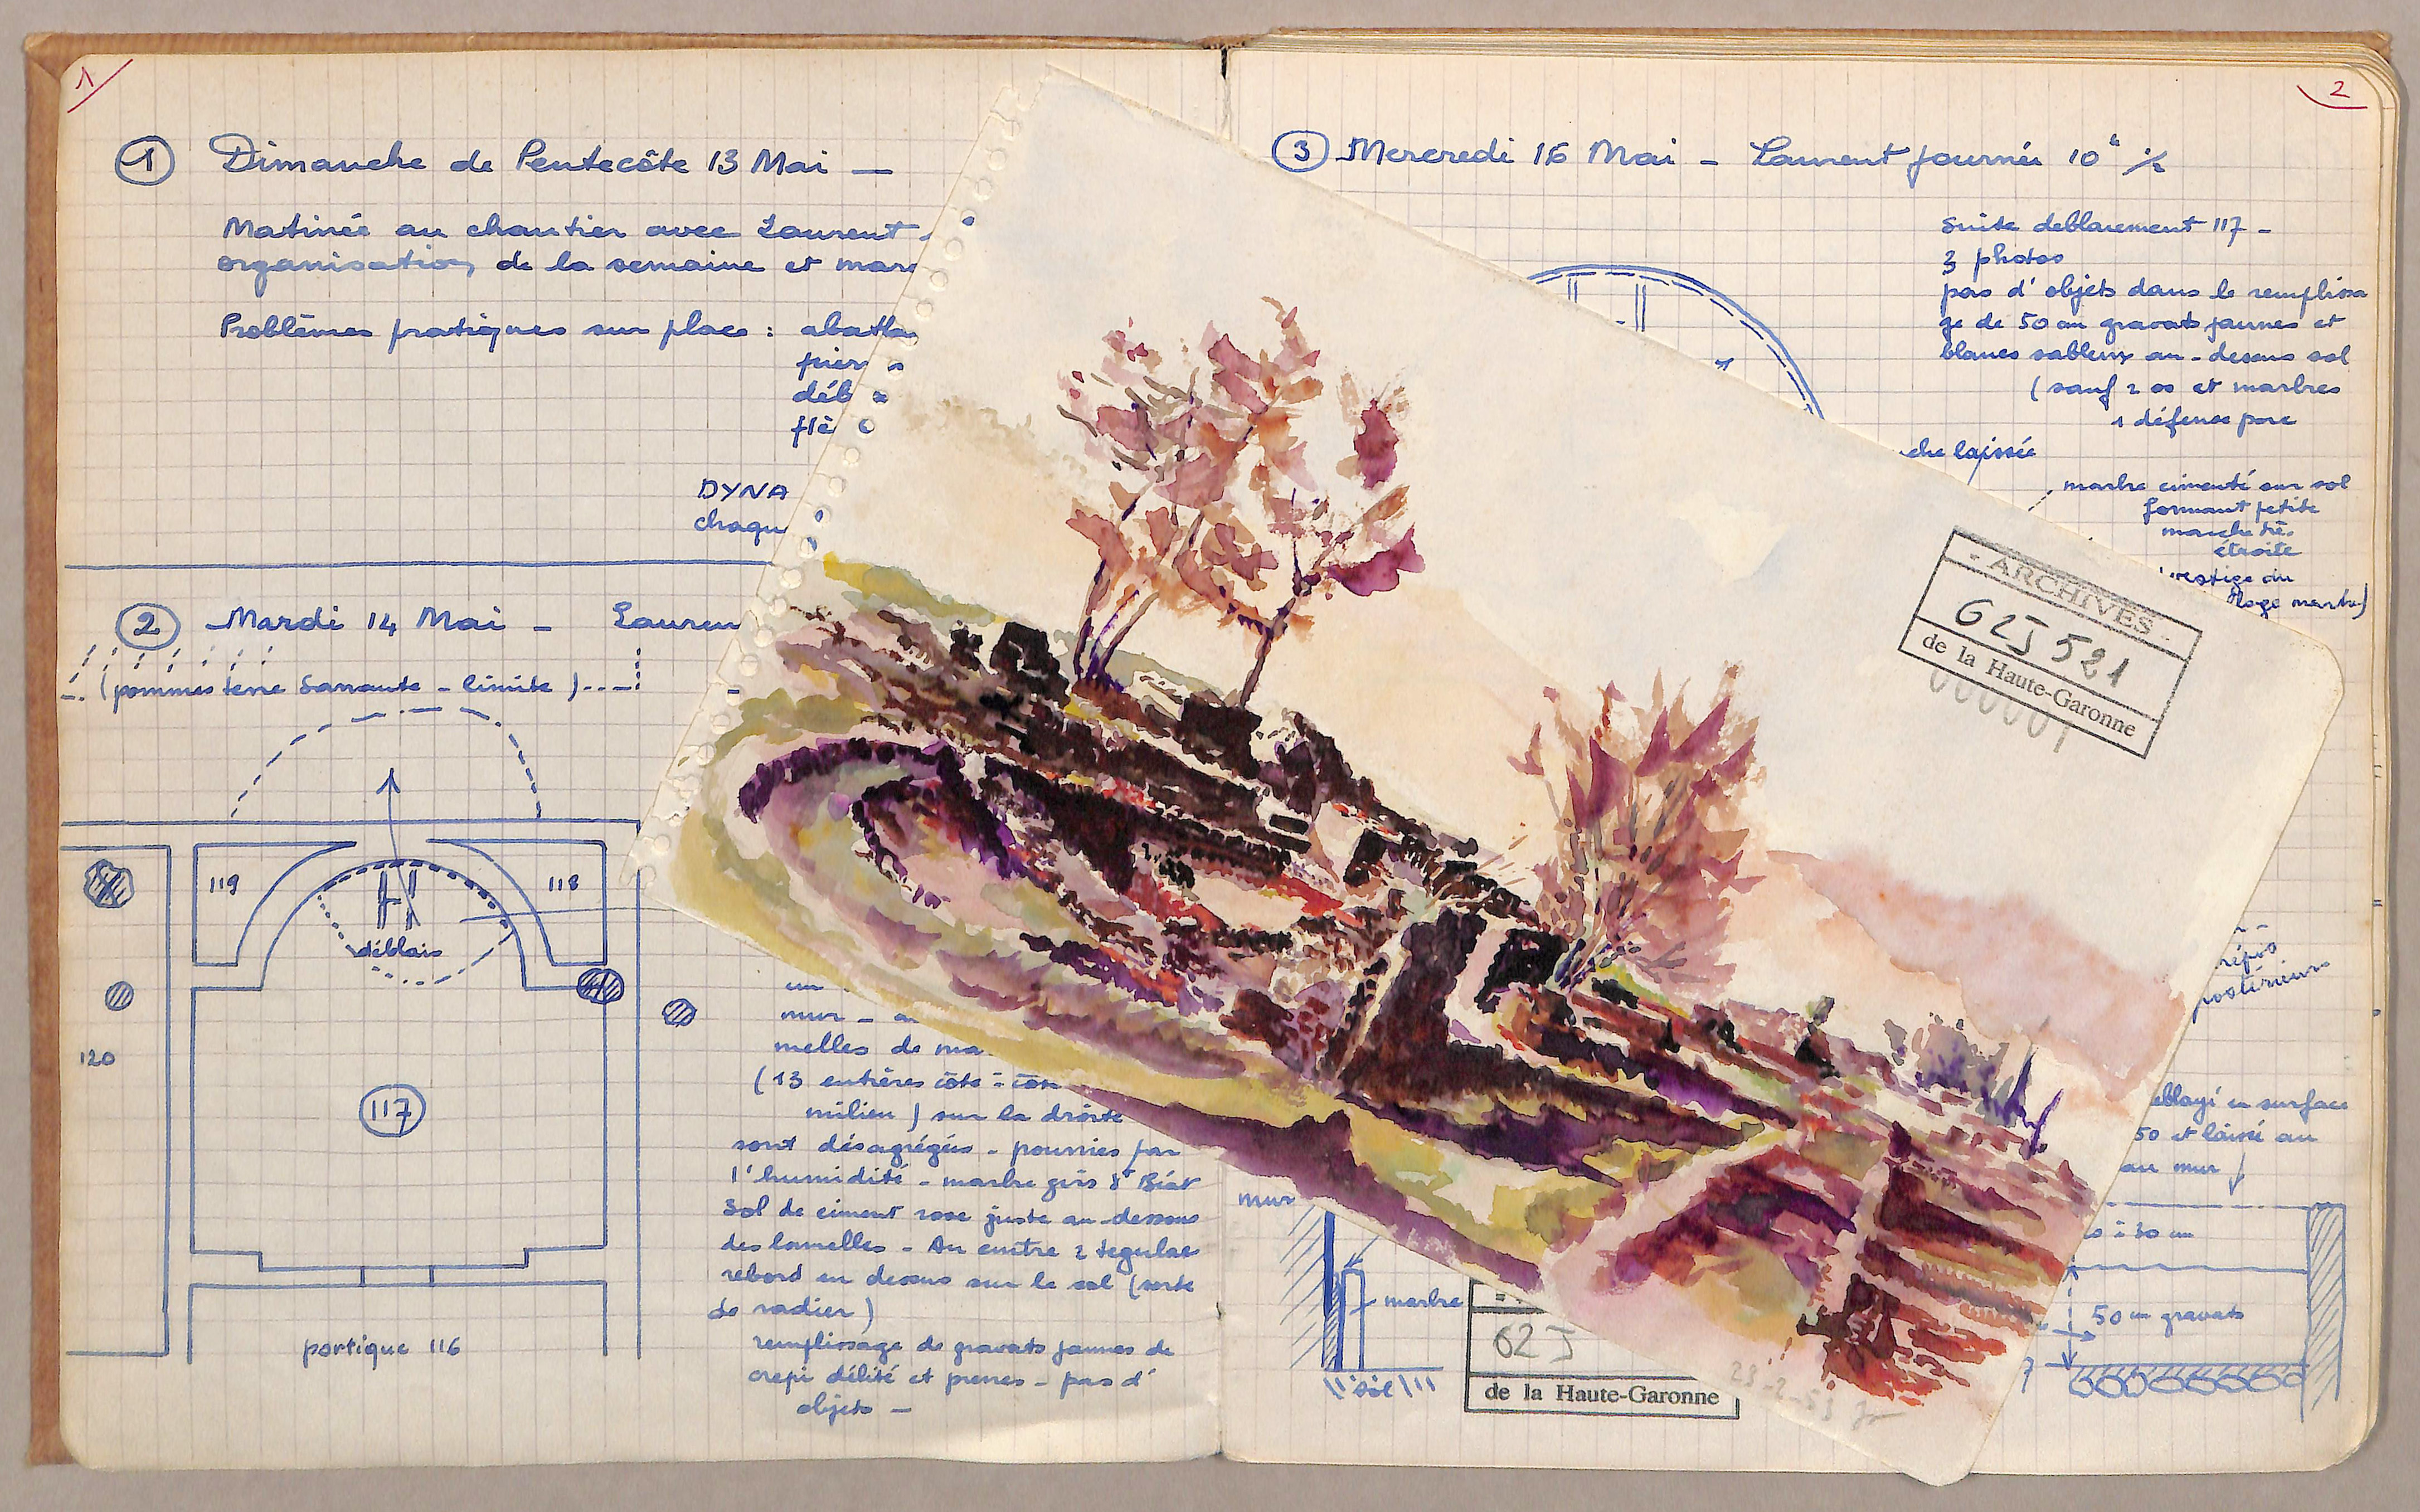 1
① Dimanche de Pentecôte 13 Mai —
Matinée au chantier avec Laurent -
organisation de la semaine et
Problèmes pratiques sur place :
DYNA
② Mardi 14 Mai -
(pommes terre Sarraute - limite)
119
118
déblais
120
117
portique 116
mur -
melles de
(13 entières côte à côte
milieu) sur la droite
sont désagrégées - pourries par
l'humidité - marbre gris St Béat
Sol de ciment rose juste au-dessous
des lamelles - Au centre 2 tegulae
rebord en dessus sur le sol (sorte
de radier)
remplissage de gravats jaunes de
crepi délité et pierres - pas d'
objets -
2
③ Mercredi 16 Mai - Laurent journée 10h ½
Suite deblaiement 117 -
3 photos
pas d'objets dans le remplissa
ge de 50 cm gravats jaunes et
blancs sableux au-dessus sol
(sauf 2 os et marbres
1 défense porc
laissée
marbre cimenté sur sol
formant petite
marche très
étroite
vestige du
postérieurs
en surface
50 et laissé au
au mur
mur
marbre
sol
à 30 cm
50 cm gravats
62J
de la Haute-Garonne
- ARCHIVES -
62J 521
de la Haute-Garonne
00001